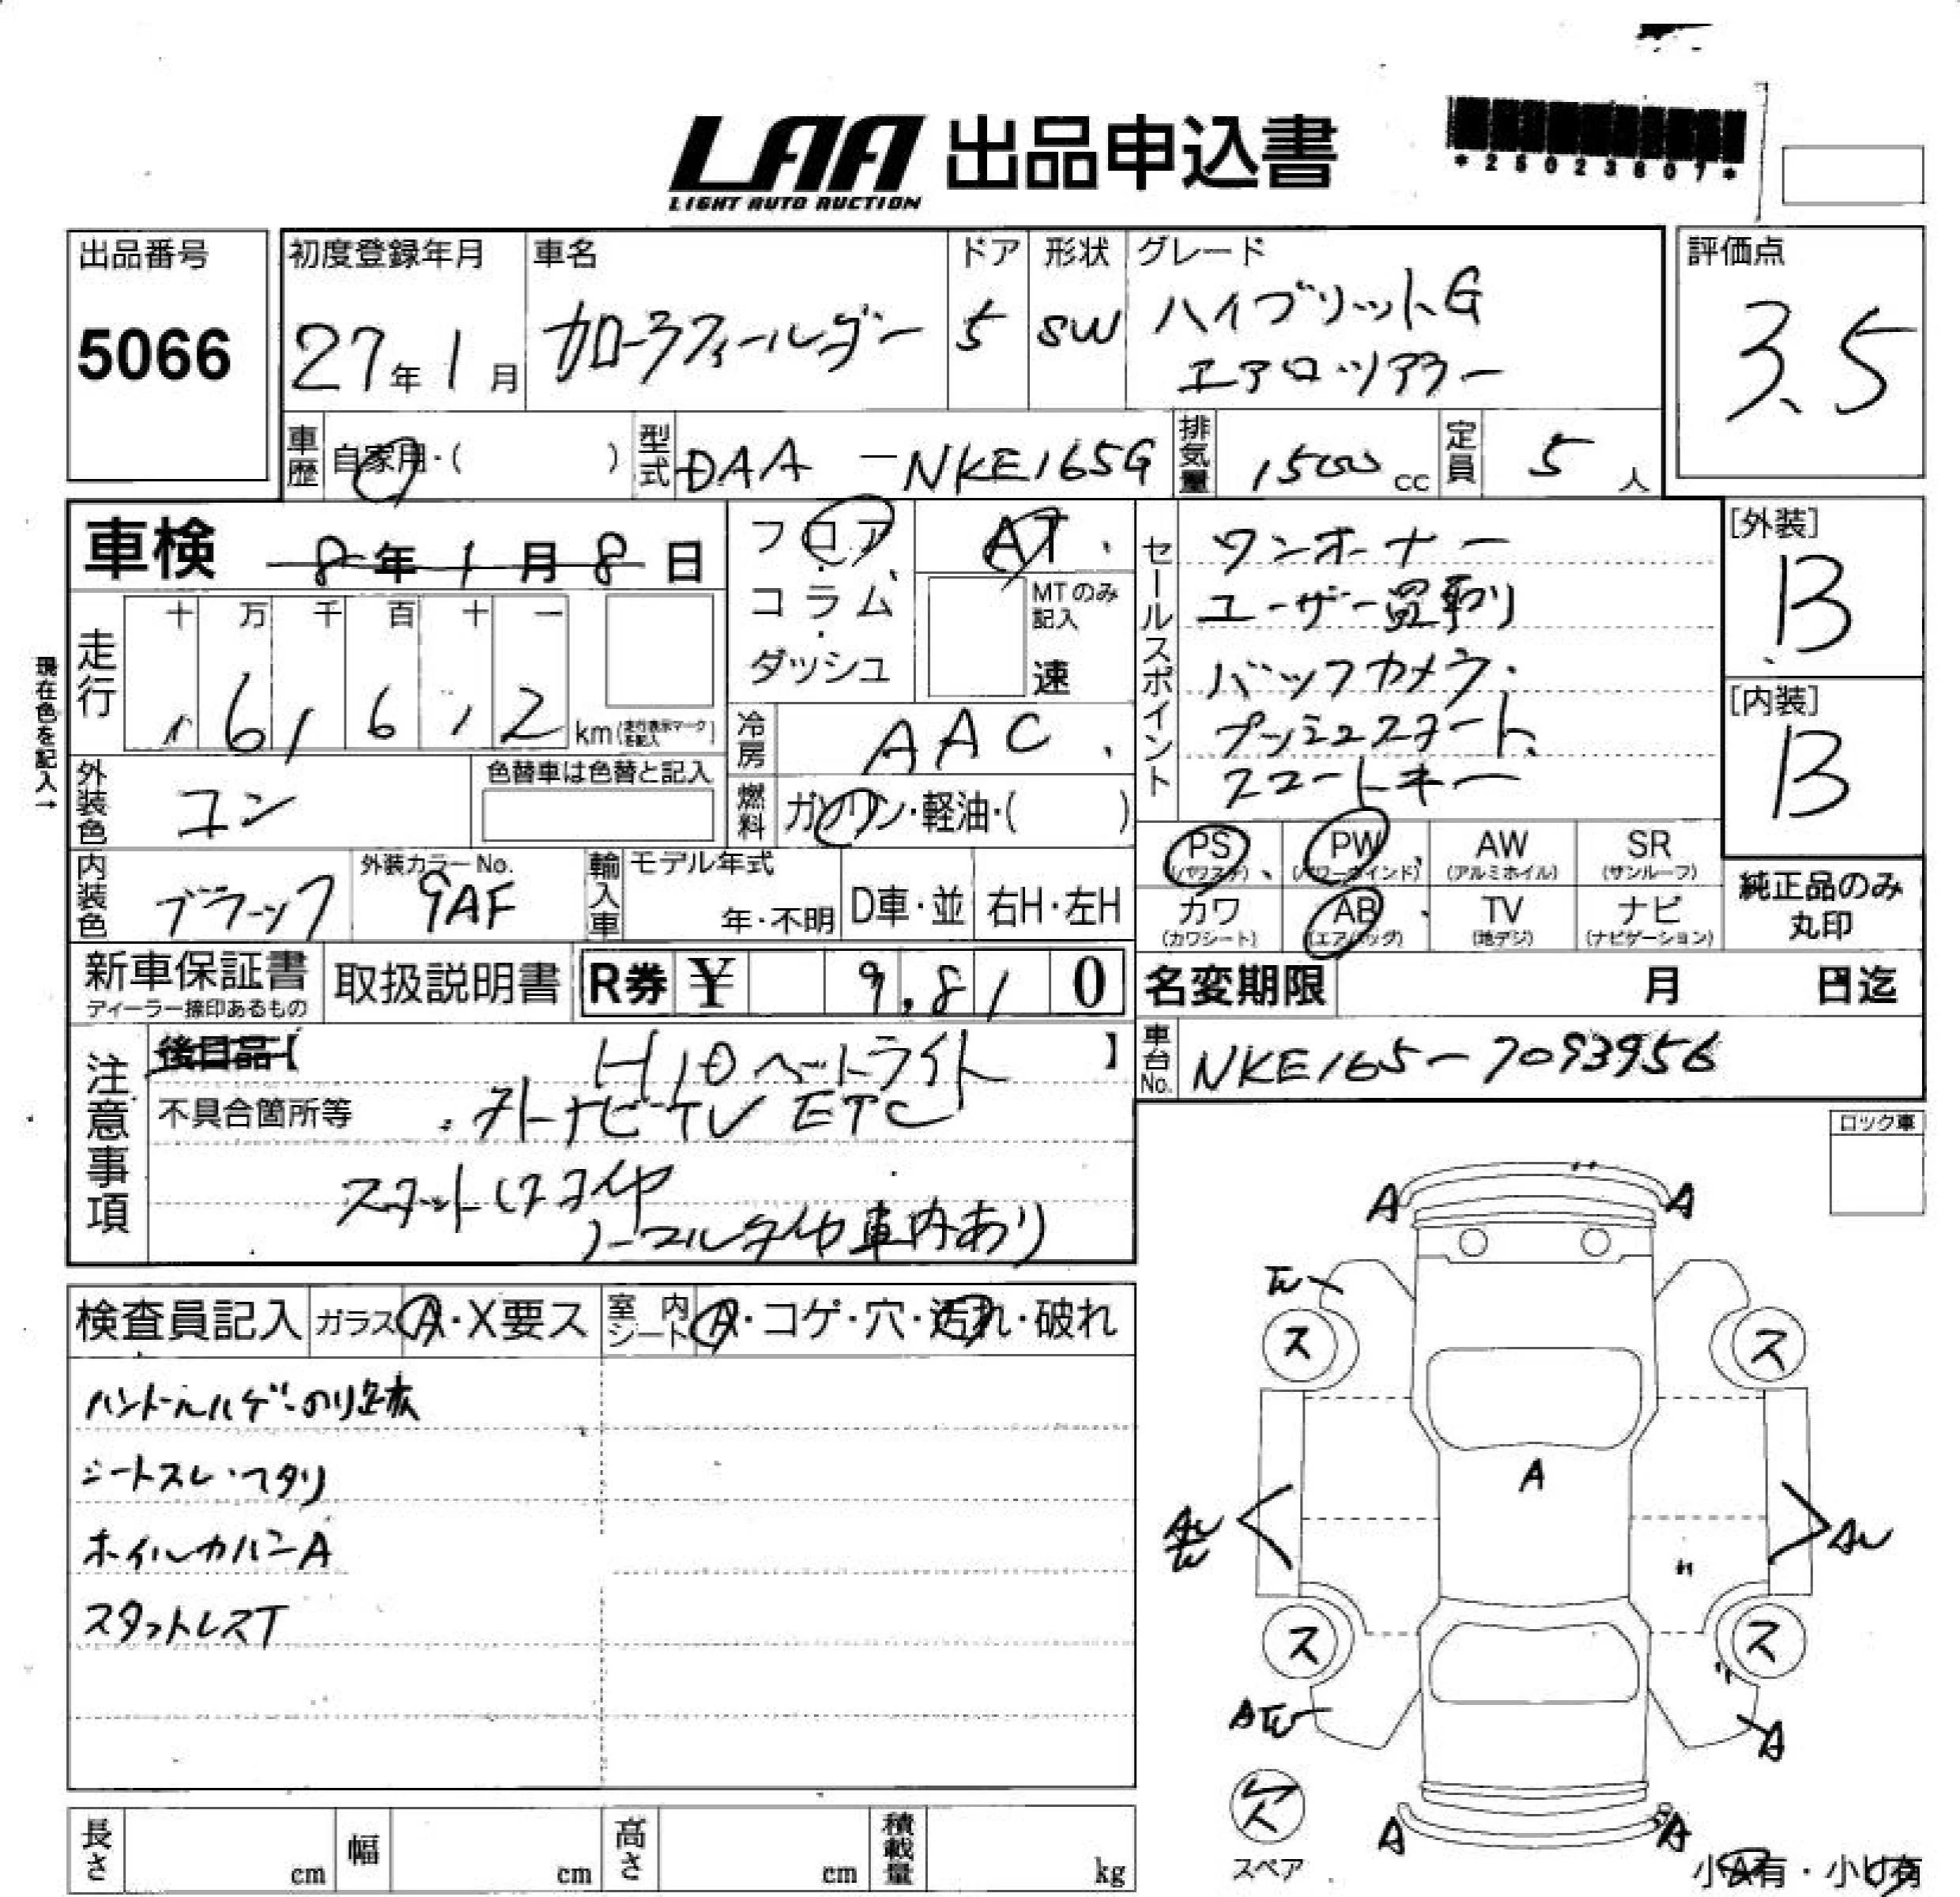 LAA 出品申込書
LIGHT AUTO AUCTION
*25023607*
出品番号
5066
初度登録年月
27年1月
車名
カローラフィールダー
ドア
5
形状
SW
グレード
ハイブリットG
エアロツアラー
評価点
3.5
車歴 自家用・( )
型式 DAA-NKE165G
排気量 1500cc
定員 5人
車検 8年1月8日
フロア・コラム・ダッシュ
AT
MTのみ記入
速
セールスポイント
ワンオーナー
ユーザー買取り
バックカメラ.
プッシュスタート
スマートキー
[外装]
B
[内装]
B
現在色を記入→
走行
十 万 千 百 十 一
, 6 1 6 1 2 km(走行表示マークを記入)
冷房 AAC
燃料 ガソリン・軽油・( )
外装色 コン
色替車は色替と記入
内装色 ブラック
外装カラーNo.
9AF
輸入車 モデル年式
年・不明
D車・並
右H・左H
PS (パワステ)
PW (パワーウインド)
AW (アルミホイル)
SR (サンルーフ)
カワ (カワシート)
AB (エアバッグ)
TV (地デジ)
ナビ (ナビゲーション)
純正品のみ
丸印
新車保証書
ディーラー捺印あるもの
取扱説明書
R券 ¥ 9,810
名変期限 月 日迄
車台No. NKE165-7093956
注意事項
後日品【 】
HIDヘートライト
不具合箇所等
ナビTV ETC
ノーマルタイヤ車内あり
ロック車
検査員記入
ガラス A・X要ス
室内シート A・コゲ・穴・汚れ・破れ
ハンドルハゲ・のり跡
シートスレ・ヘタリ
ホイルカバーA
スタットレスT
A A
ス ス
A
AU
ス ス
A
欠
スペア
A A
小A有・小U有
長さ cm
幅 cm
高さ cm
積載量 kg